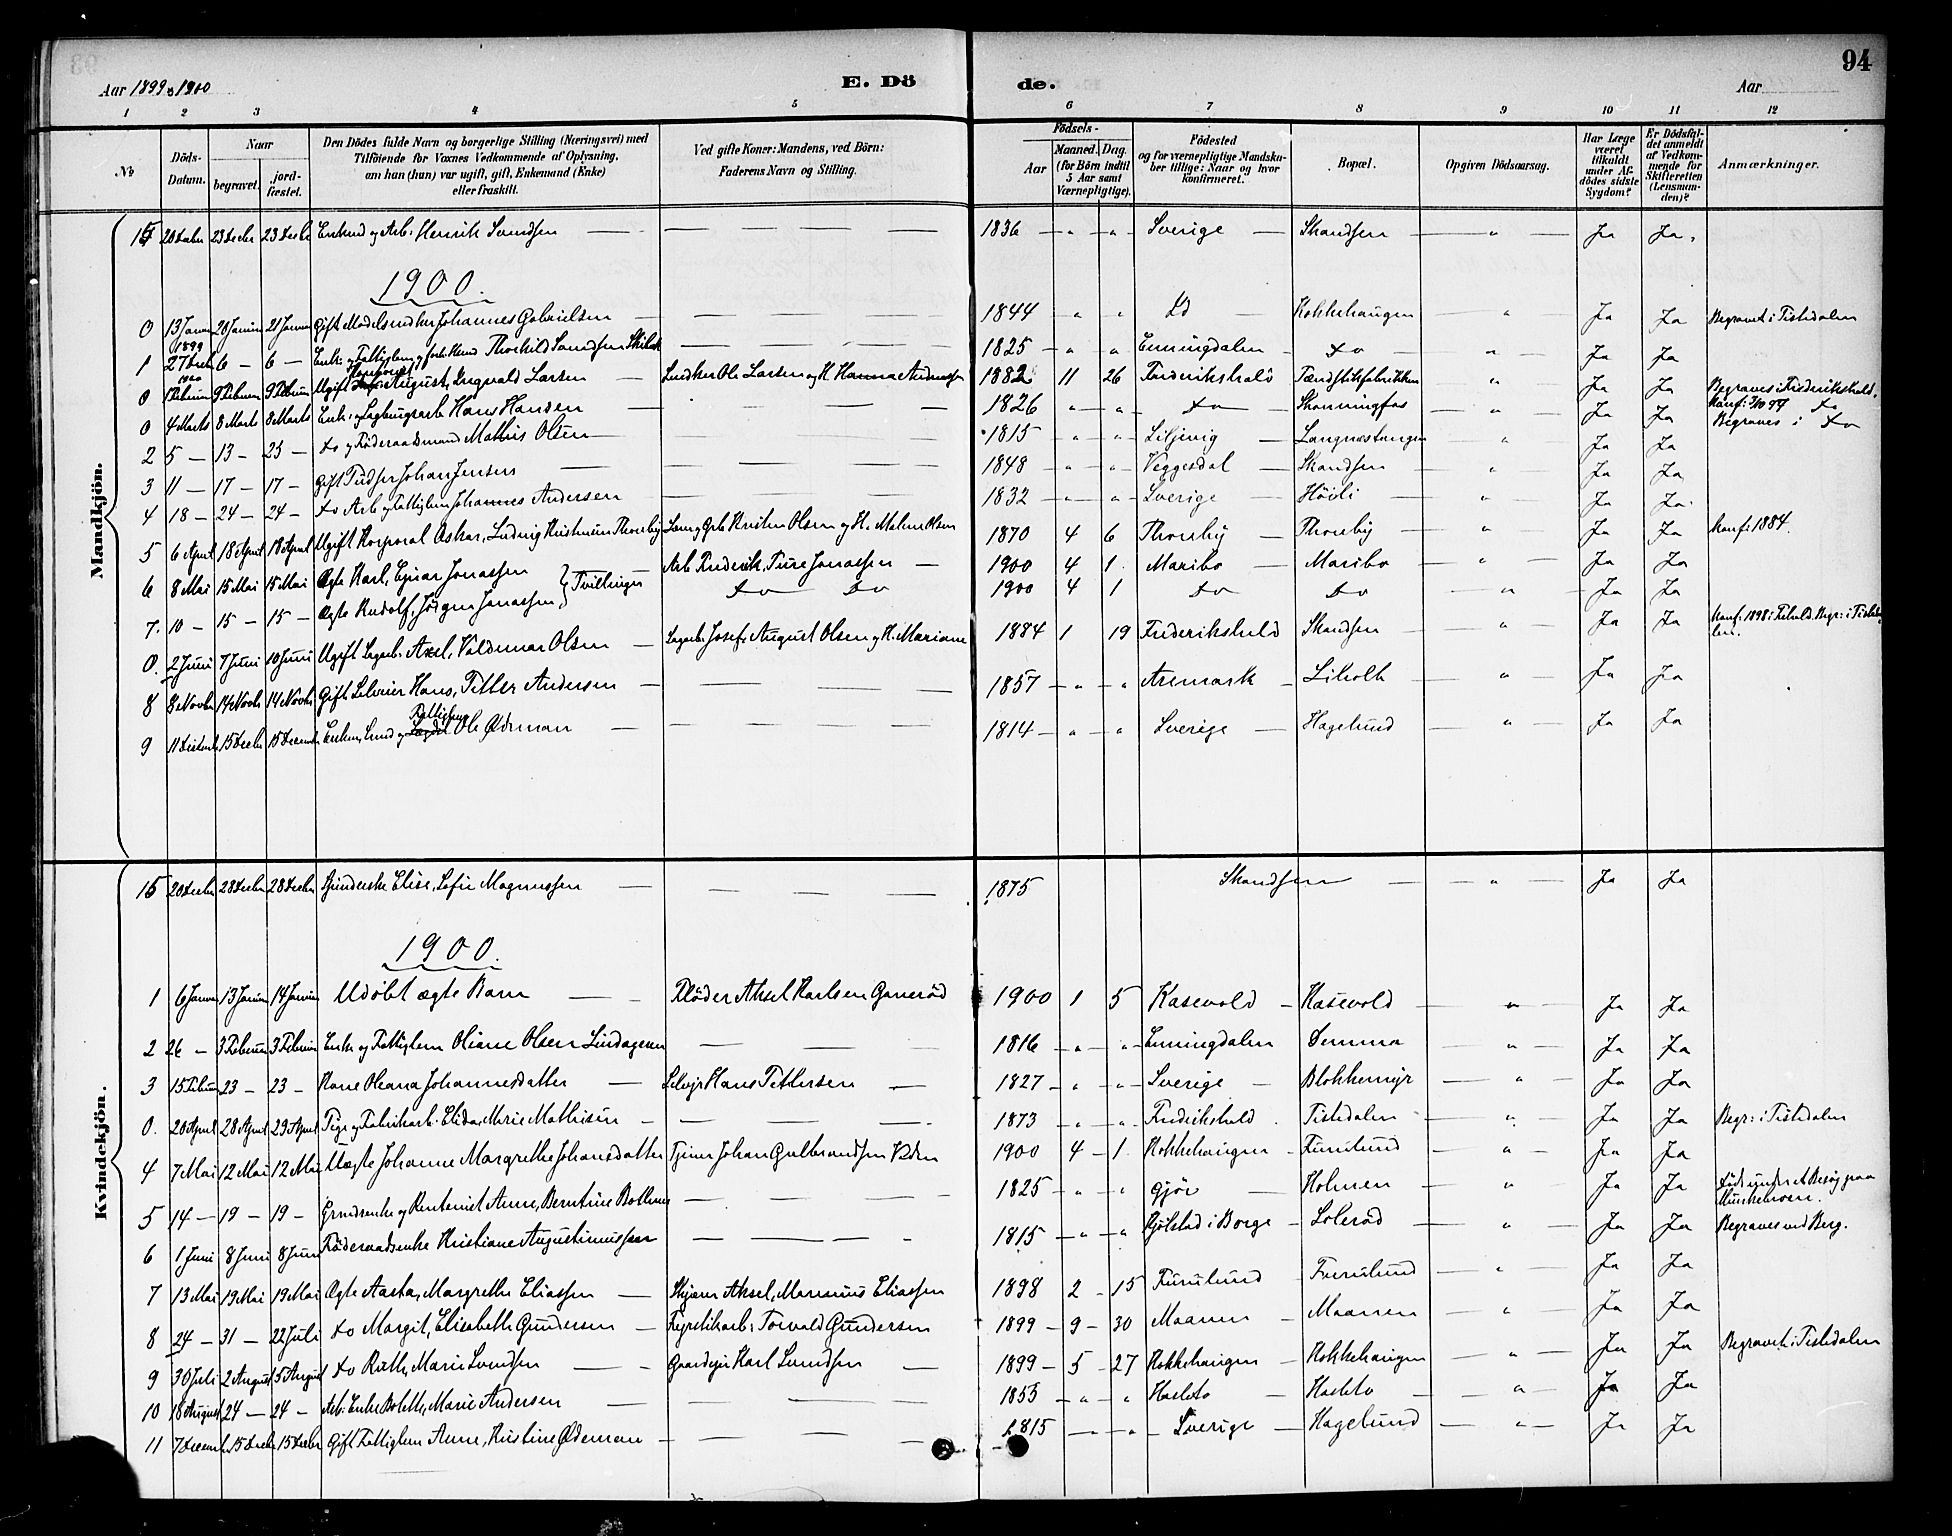 94
Aar 1899 & 1900
E. Dö de.
Aar
1 2 3 4 5 6 7 8 9 10 11 12
No
Döds-Datum.
Naar
begravet.
jord-fæstet.
Den Dödes fulde Navn og borgerlige Stilling (Næringsvei) med Tilföiende for Voxnes Vedkommende af Oplysning, om han (hun) var ugift, gift, Enkemand (Enke) eller fraskilt.
Ved gifte Koner: Mandens, ved Börn: Faderens Navn og Stilling.
Födsels-
Aar
Maaned. Dag.
(for Börn indtil 5 Aar samt Værnepligtige).
Födested og for værnepligtige Mandskaber tillige: Naar og hvor konfirmeret.
Bopæl.
Opgiven Dödsaarsag.
Har Læge været tilkaldt under Afdödes sidste Sygdom?
Er Dödsfaldet anmeldt af Vedkommende for Skifteretten (Lensmanden)?
Anmærkninger.
Mandkjön.
20 Decbr 23 Decbr 23 Decbr Enkmd og Arb. Henrik Svendsen 1836 Sverige Skandsen Ja Ja
1900.
0 13 Januar 20 Januar 21 Januar Gift Johannes Gabrielsen 1844 Id Kokkehaugen Ja Ja Begravet i Tistedalen
1 1899 27 Decbr 6 - 6 - Thorkild Svendsen 1825 Enningdalen do Ja Ja
0 1900 9 Februar 9 Februar Ugift August, Ingvald Larsen Ole Larsen og H. Hanna Andersen 1882 11 26 Frederikshald Tændstikfabrikken Ja Ja Begraves i Frederikshald.
0 4 Marts 8 Marts 8 Marts Enk: og Hans Hansen 1826 do Skonningfos Ja Ja Begraves i do
2 5 - 13 - 25 - do og Föderaadsmand Mathis Olsen 1815 Liljevig Langnæstangen Ja Ja
3 11 - 17 - 17 - Gift Johan Jensen 1848 Veggesdal Skandsen Ja Ja
4 18 - 24 - 24 - do Arb. og Fattiglem Johannes Andersen 1832 Sverige Höili Ja Ja
5 6 April 18 April 18 April Ugift Korporal Oskar, Ludvig Thoreby og H. Malene Olsen 1870 4 6 Thoreby Thoreby Ja Ja Konf: 1884.
6 8 Mai 15 Mai 15 Mai Ægte Karl, Ejnar Jonassen } Tvillinger Arb. Frederik, Ture Jonassen 1900 4 1 Maribo Maribo Ja Ja
7. 10 - 15 - 15 - Ægte Rudolf, Jörgen Jonassen do do 1900 4 1 do do Ja Ja
0. 2 Juni 7 Juni 10 Juni Ugift Axel, Valdemar Olsen Josef, August Olsen og H. Mariane 1884 1 19 Frederikshald Skandsen Ja Ja
8 8 Novbr 14 Novbr 14 Novbr Gift Hans, Petter Andersen 1857 Aremark Liholt Ja Ja
9 15 Decbr Ole Ödeman 1814 Sverige Hagelund Ja Ja
Kvindekjön.
20 Decbr 28 Decbr 28 Decbr Elise, Sofie Magnussen 1875 Skandsen Ja Ja
1900.
1 6 Januar 13 Januar 14 Januar Udöbt ægte Barn Flöder Aksel Karlsen 1900 1 5 Kasevold Kasevold Ja Ja
2 26 - 3 Februar 3 Februar Enke og Fattiglem Oliane Olsen 1816 Enningdalen Demma Ja Ja
3 15 Februar 23 - 23 - Kone Oleana Johannesdatter Selvejr Hans Pettersen 1827 Sverige Blokkemyr Ja Ja
0. 20 April 28 April 29 April Pige og Fabrikarb. Elida, Marie Mathisen 1873 Frederikshald Tistedalen Ja Ja Begr: i Tistedalen
4 7 Mai 12 Mai 12 Mai Uægte Johanne Margrethe Johansdatter Tjener Johan Gulbrandsen 1900 4 1 Kokkehaugen Furulund Ja Ja
5 14 - 19 - 19 - Anne, Berntine 1825 Holmen Ja Ja
6 1 Juni 8 Juni 8 Juni Föderaadsenke Kristiane Augustinussen 1815 i Borge Solerød Ja Ja Begraves ved Berg.
7 13 Mai 19 Mai 19 Mai Ægte Aasta, Margrethe Eliassen Aksel, Marenius Eliassen 1898 2 15 Furulund Furulund Ja Ja
8 24 - 31 - 22 Juli do Margit, Elisabeth Gundersen Torvald Gundersen 1899 9 30 Maanen Maanen Ja Ja
9 30 Juli 2 August 5 August do Ruth, Marie Svendsen Gaardejer Karl Svendsen 1899 5 27 Kokkehaugen Kokkehaugen Ja Ja Begravet i Tistedalen
10 18 August 24 - 24 - Arb: Enke Bolette, Marie Andersen 1853 Ja Ja
11 15 Decbr 15 Decbr Gift Fattiglem Anne, Kristine Ödeman 1815 Sverige Hagelund Ja Ja